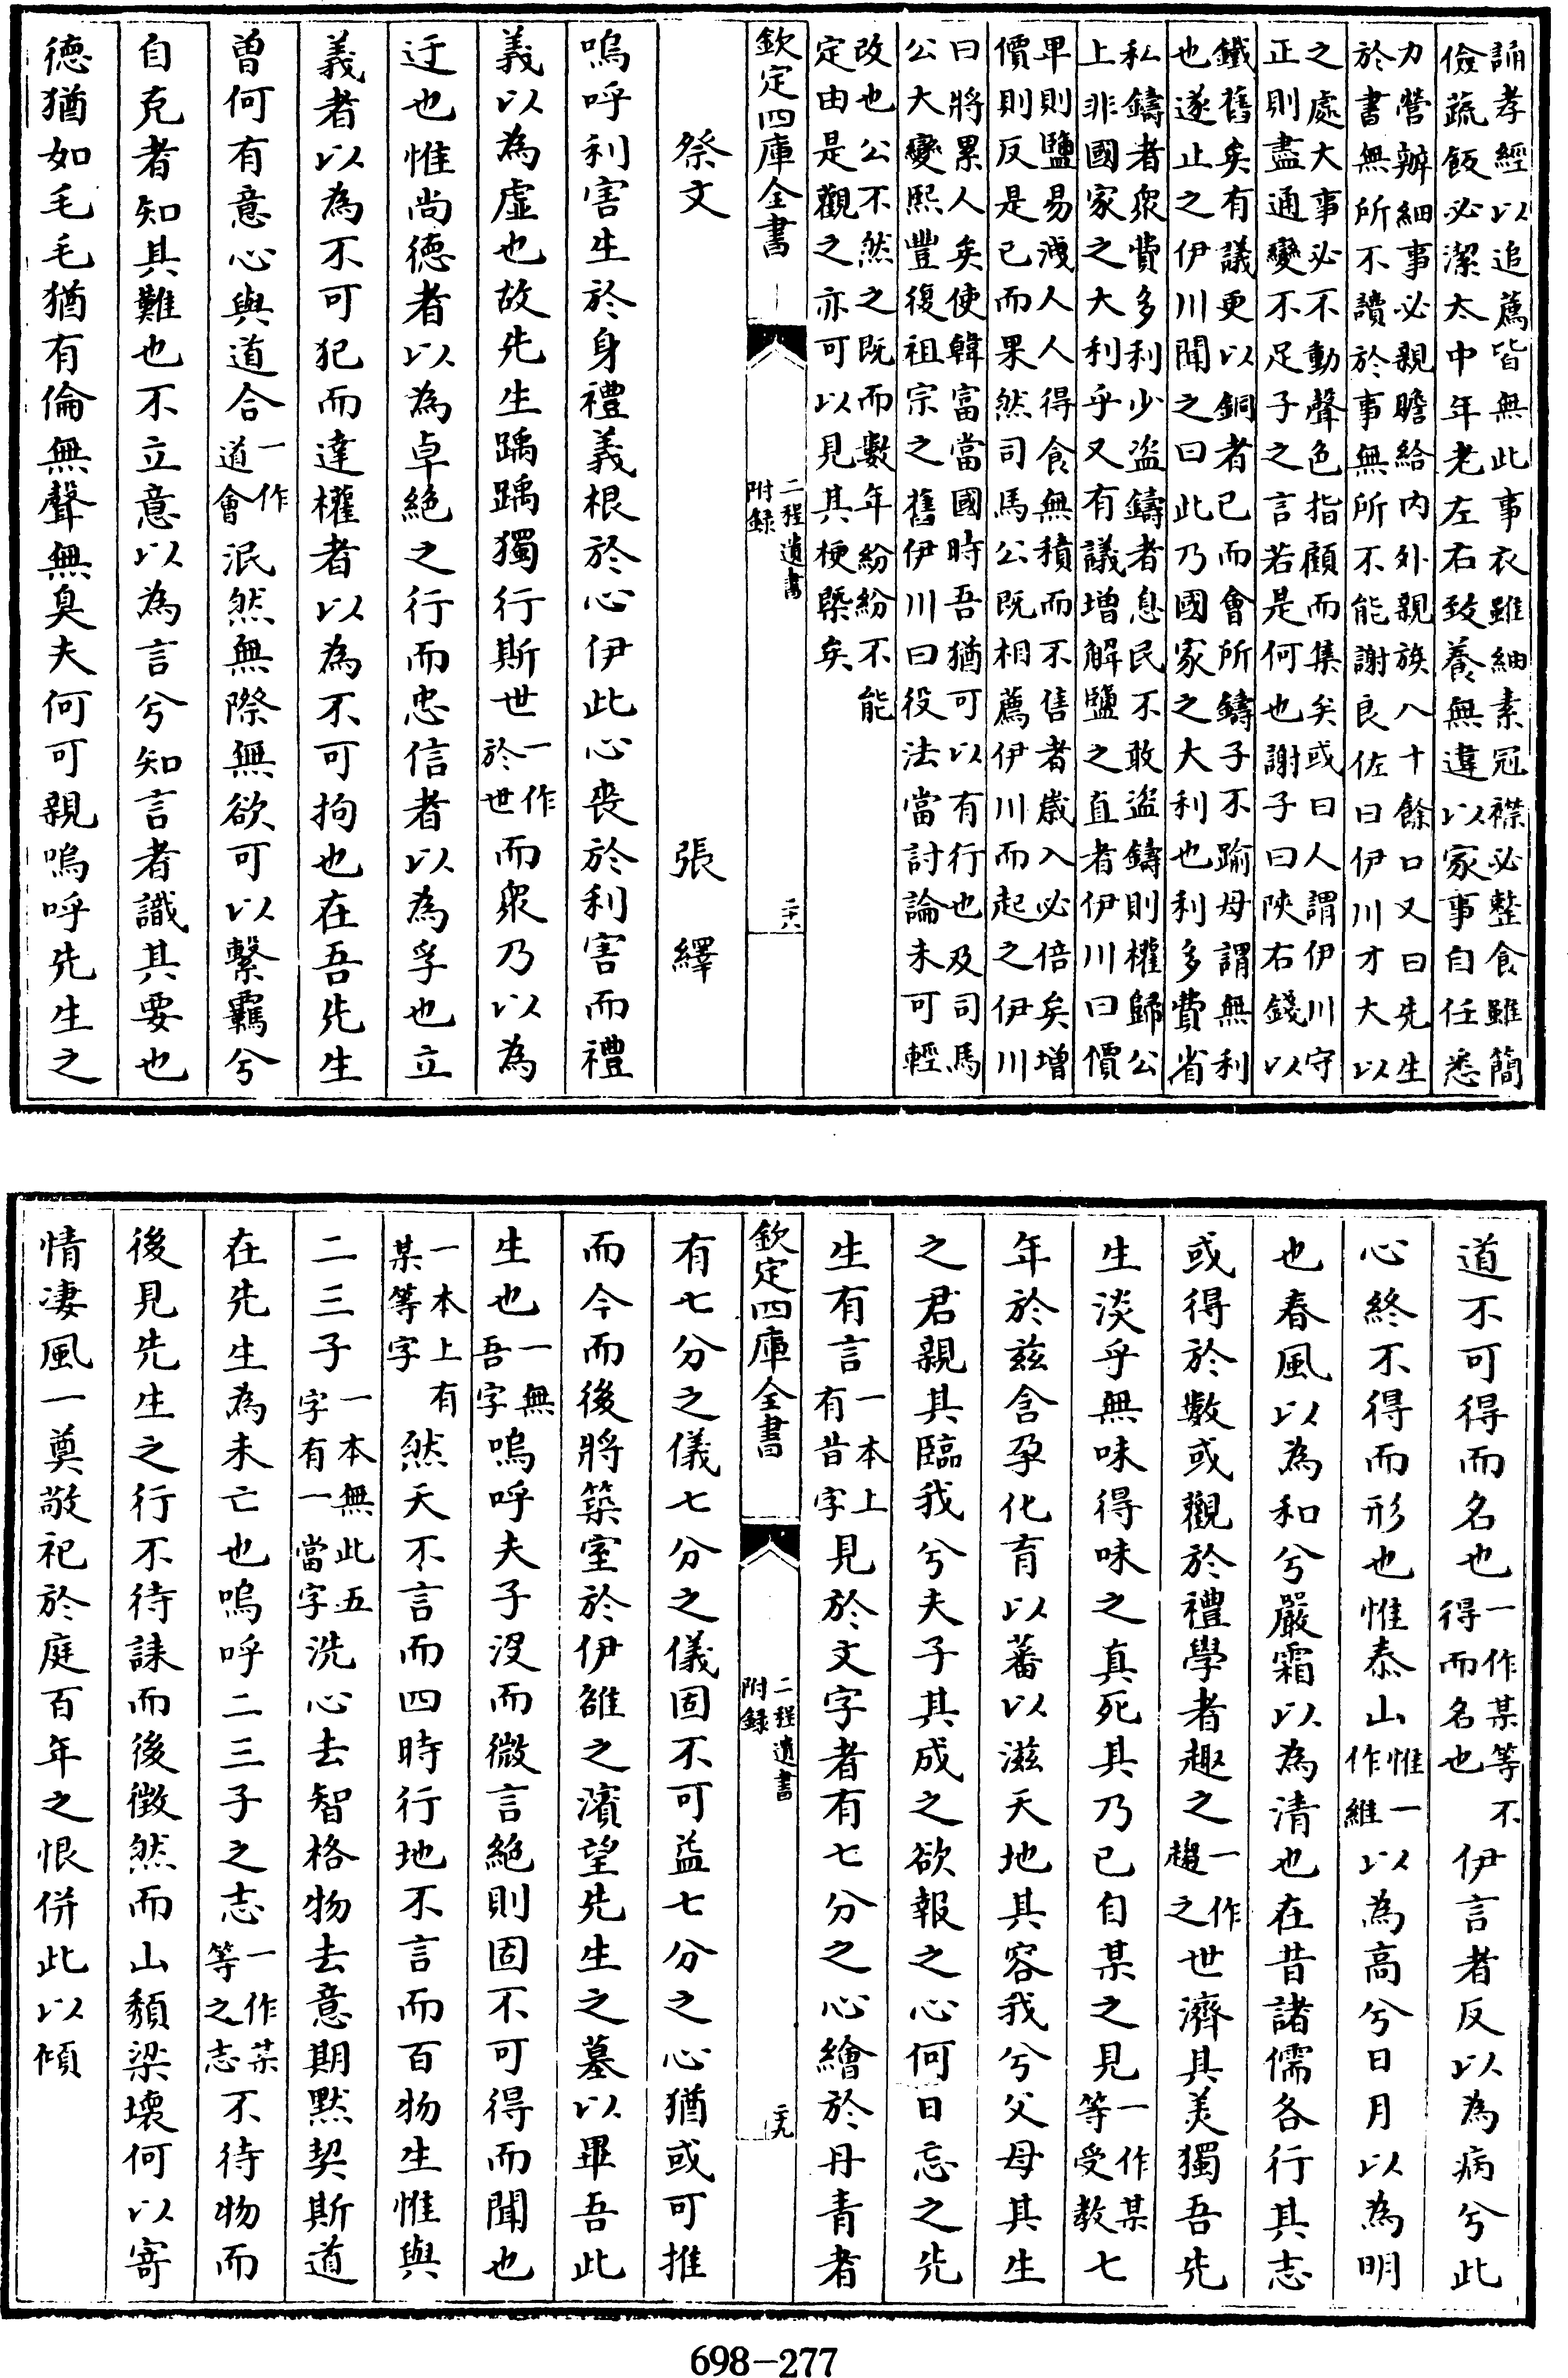 誦孝經以追薦皆無此事衣雖紬素冠襟必整食雖簡
儉蔬飯必潔太中年老左右致養無違以家事自任悉
力營辦細事必親贍給内外親族八十餘口又曰先生
於書無所不讀於事無所不能謝良佐曰伊川才大以
之處大事必不動聲色指顧而集矣或曰人謂伊川守
正則盡通變不足子之言若是何也謝子曰陝右錢以
鐵舊矣有議更以銅者已而會所鑄子不踰母謂無利
也遂止之伊川聞之曰此乃國家之大利也利多費省
私鑄者衆費多利少盗鑄者息民不敢盗鑄則權歸公
上非國家之大利乎又有議增解鹽之直者伊川曰價
卑則鹽易洩人人得食無積而不售者歲入必倍矣增
價則反是已而果然司馬公既相薦伊川而起之伊川
曰將累人矣使韓富當國時吾猶可以有行也及司馬
公大變熙豐復祖宗之舊伊川曰役法當討論未可輕
改也公不然之既而數年紛紛不能
定由是觀之亦可以見其梗槩矣
欽定四庫全書 二程遺書附録 二十八
祭文 張繹
嗚呼利害生於身禮義根於心伊此心喪於利害而禮
義以為虛也故先生踽踽獨行斯世一作於世而衆乃以為
迂也惟尚德者以為卓絶之行而忠信者以為孚也立
義者以為不可犯而達權者以為不可拘也在吾先生
曽何有意心與道合一作道會泯然無際無欲可以繫羈兮
自克者知其難也不立意以為言兮知言者識其要也
德猶如毛毛猶有倫無聲無臭夫何可親嗚呼先生之
道不可得而名也一作某等不得而名也伊言者反以為病兮此
心終不得而形也惟泰山惟一作維以為高兮日月以為明
也春風以為和兮嚴霜以為清也在昔諸儒各行其志
或得於數或觀於禮學者趣之一作趨之世濟其美獨吾先
生淡乎無味得味之真死其乃已自某之見一作某等受教七
年於兹含孕化育以蕃以滋天地其容我兮父母其生
之君親其臨我兮夫子其成之欲報之心何日忘之先
生有言一本上有昔字見於文字者有七分之心繪於丹青者
欽定四庫全書 二程遺書附録 二十九
有七分之儀七分之儀固不可益七分之心猶或可推
而今而後將築室於伊雒之濱望先生之墓以畢吾此
生也一無吾字嗚呼夫子沒而微言絶則固不可得而聞也
一本上有某等字然天不言而四時行地不言而百物生惟與
二三子一本無此五字有一當字洗心去智格物去意期默契斯道
在先生為未亡也嗚呼二三子之志一作某等之志不待物而
後見先生之行不待誄而後徴然而山頽梁壞何以寄
情凄風一奠敬祀於庭百年之恨併此以傾
698-277